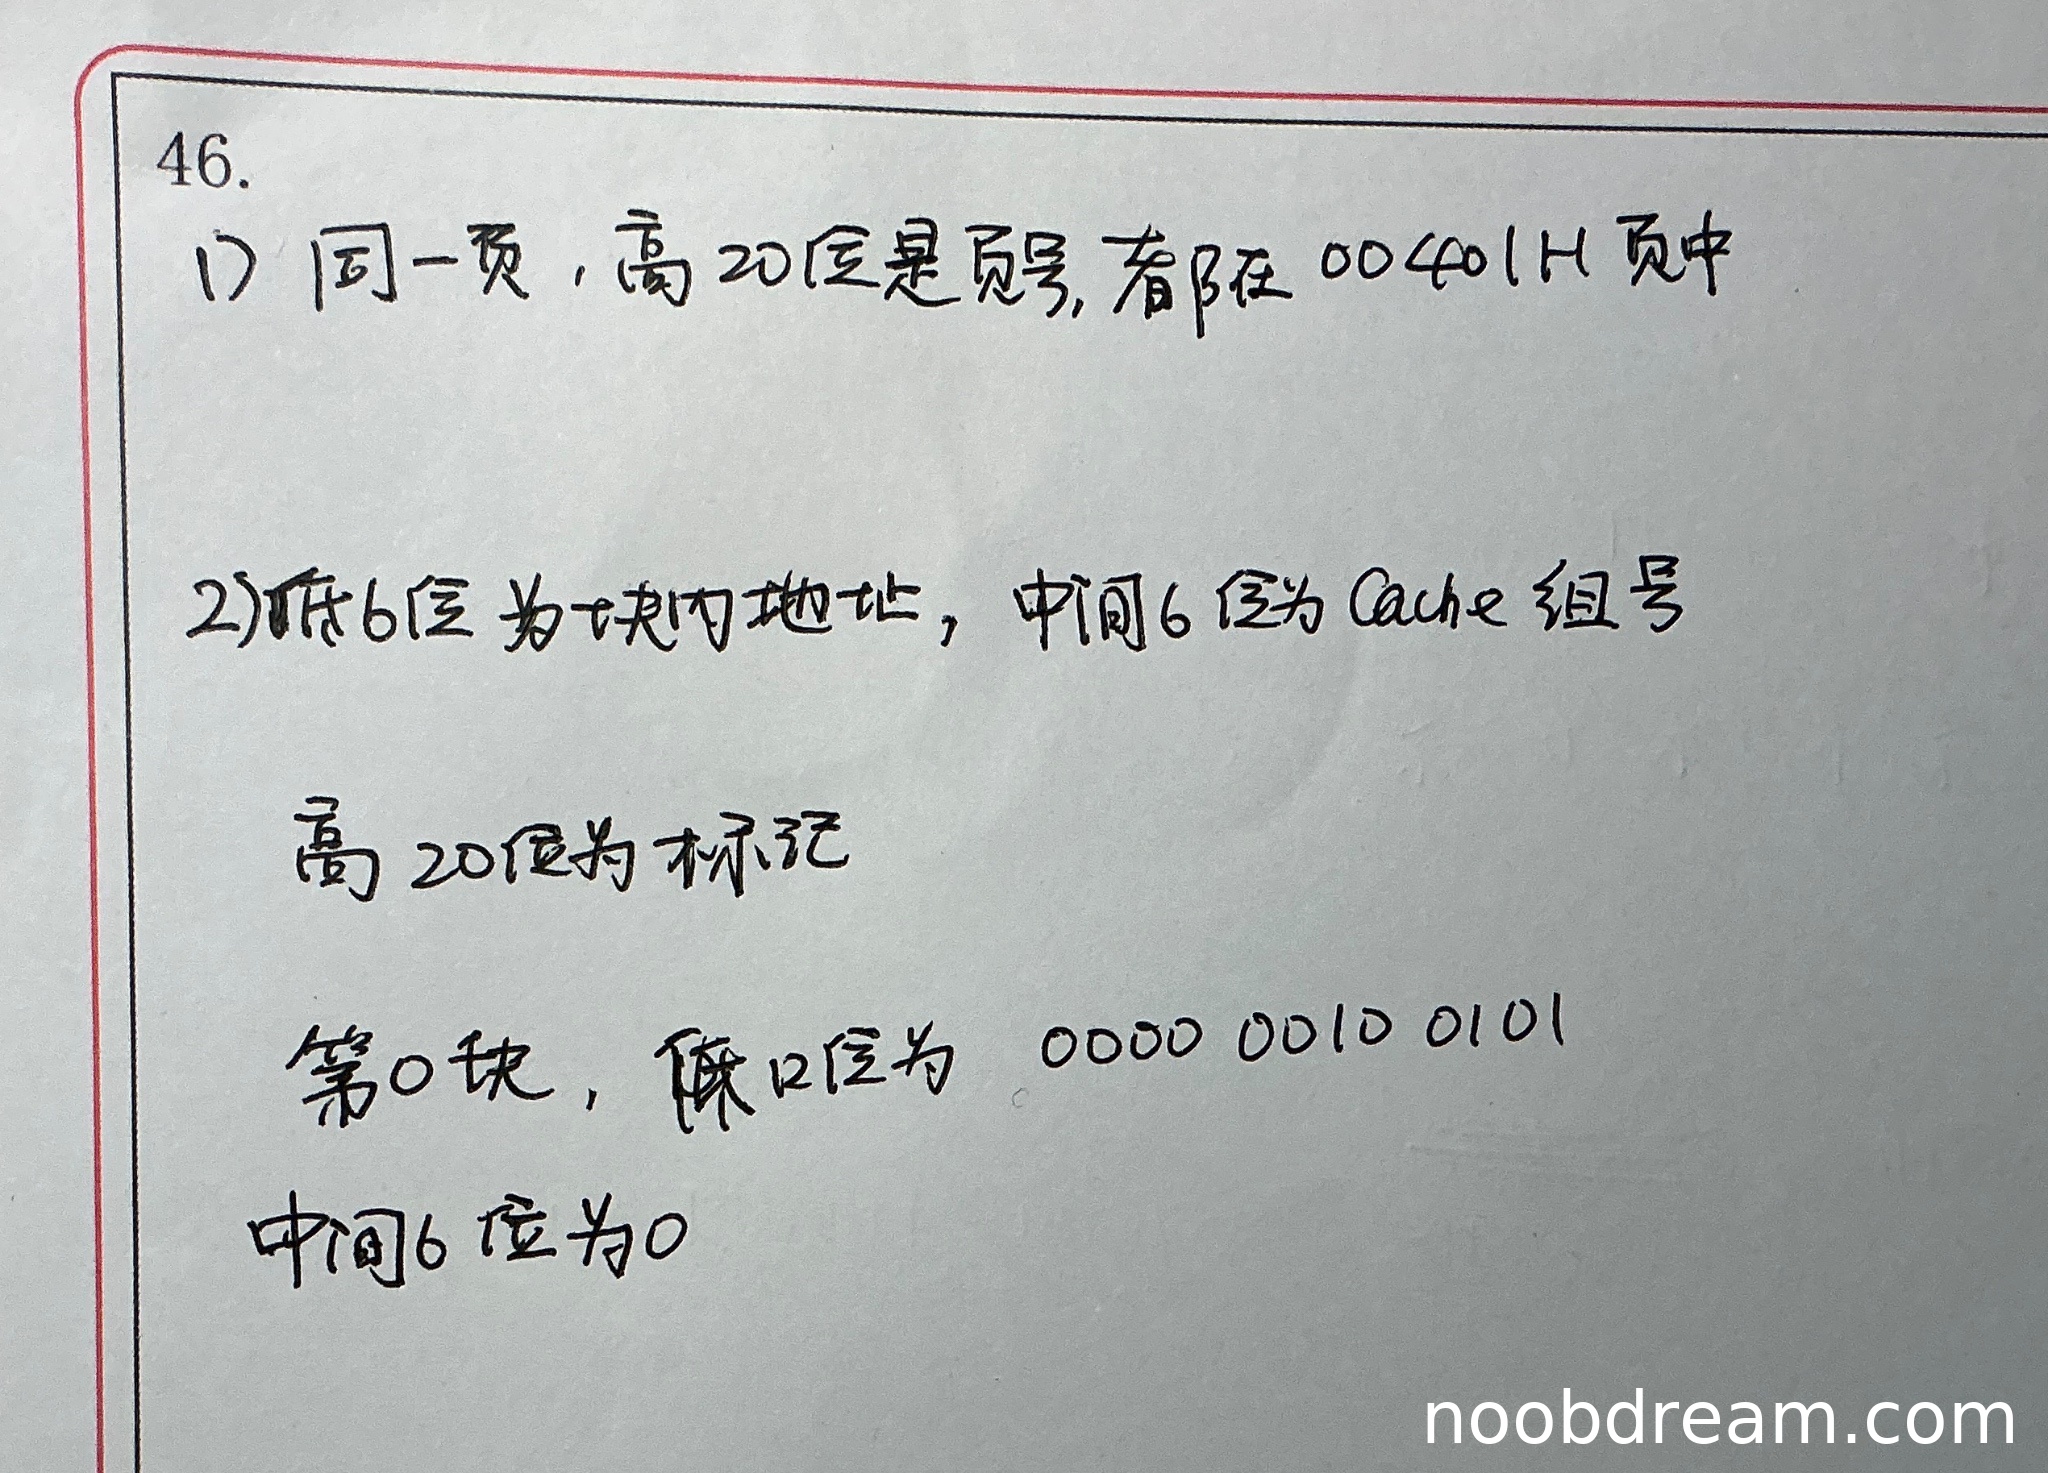 46.
1) 同一页，高20位是页号，都在00401H页中
2) 低6位为块内地址，中间6位为Cache组号
高20位为标记
第0块，低12位为 0000 0010 0101
中间6位为0
noobdream.com